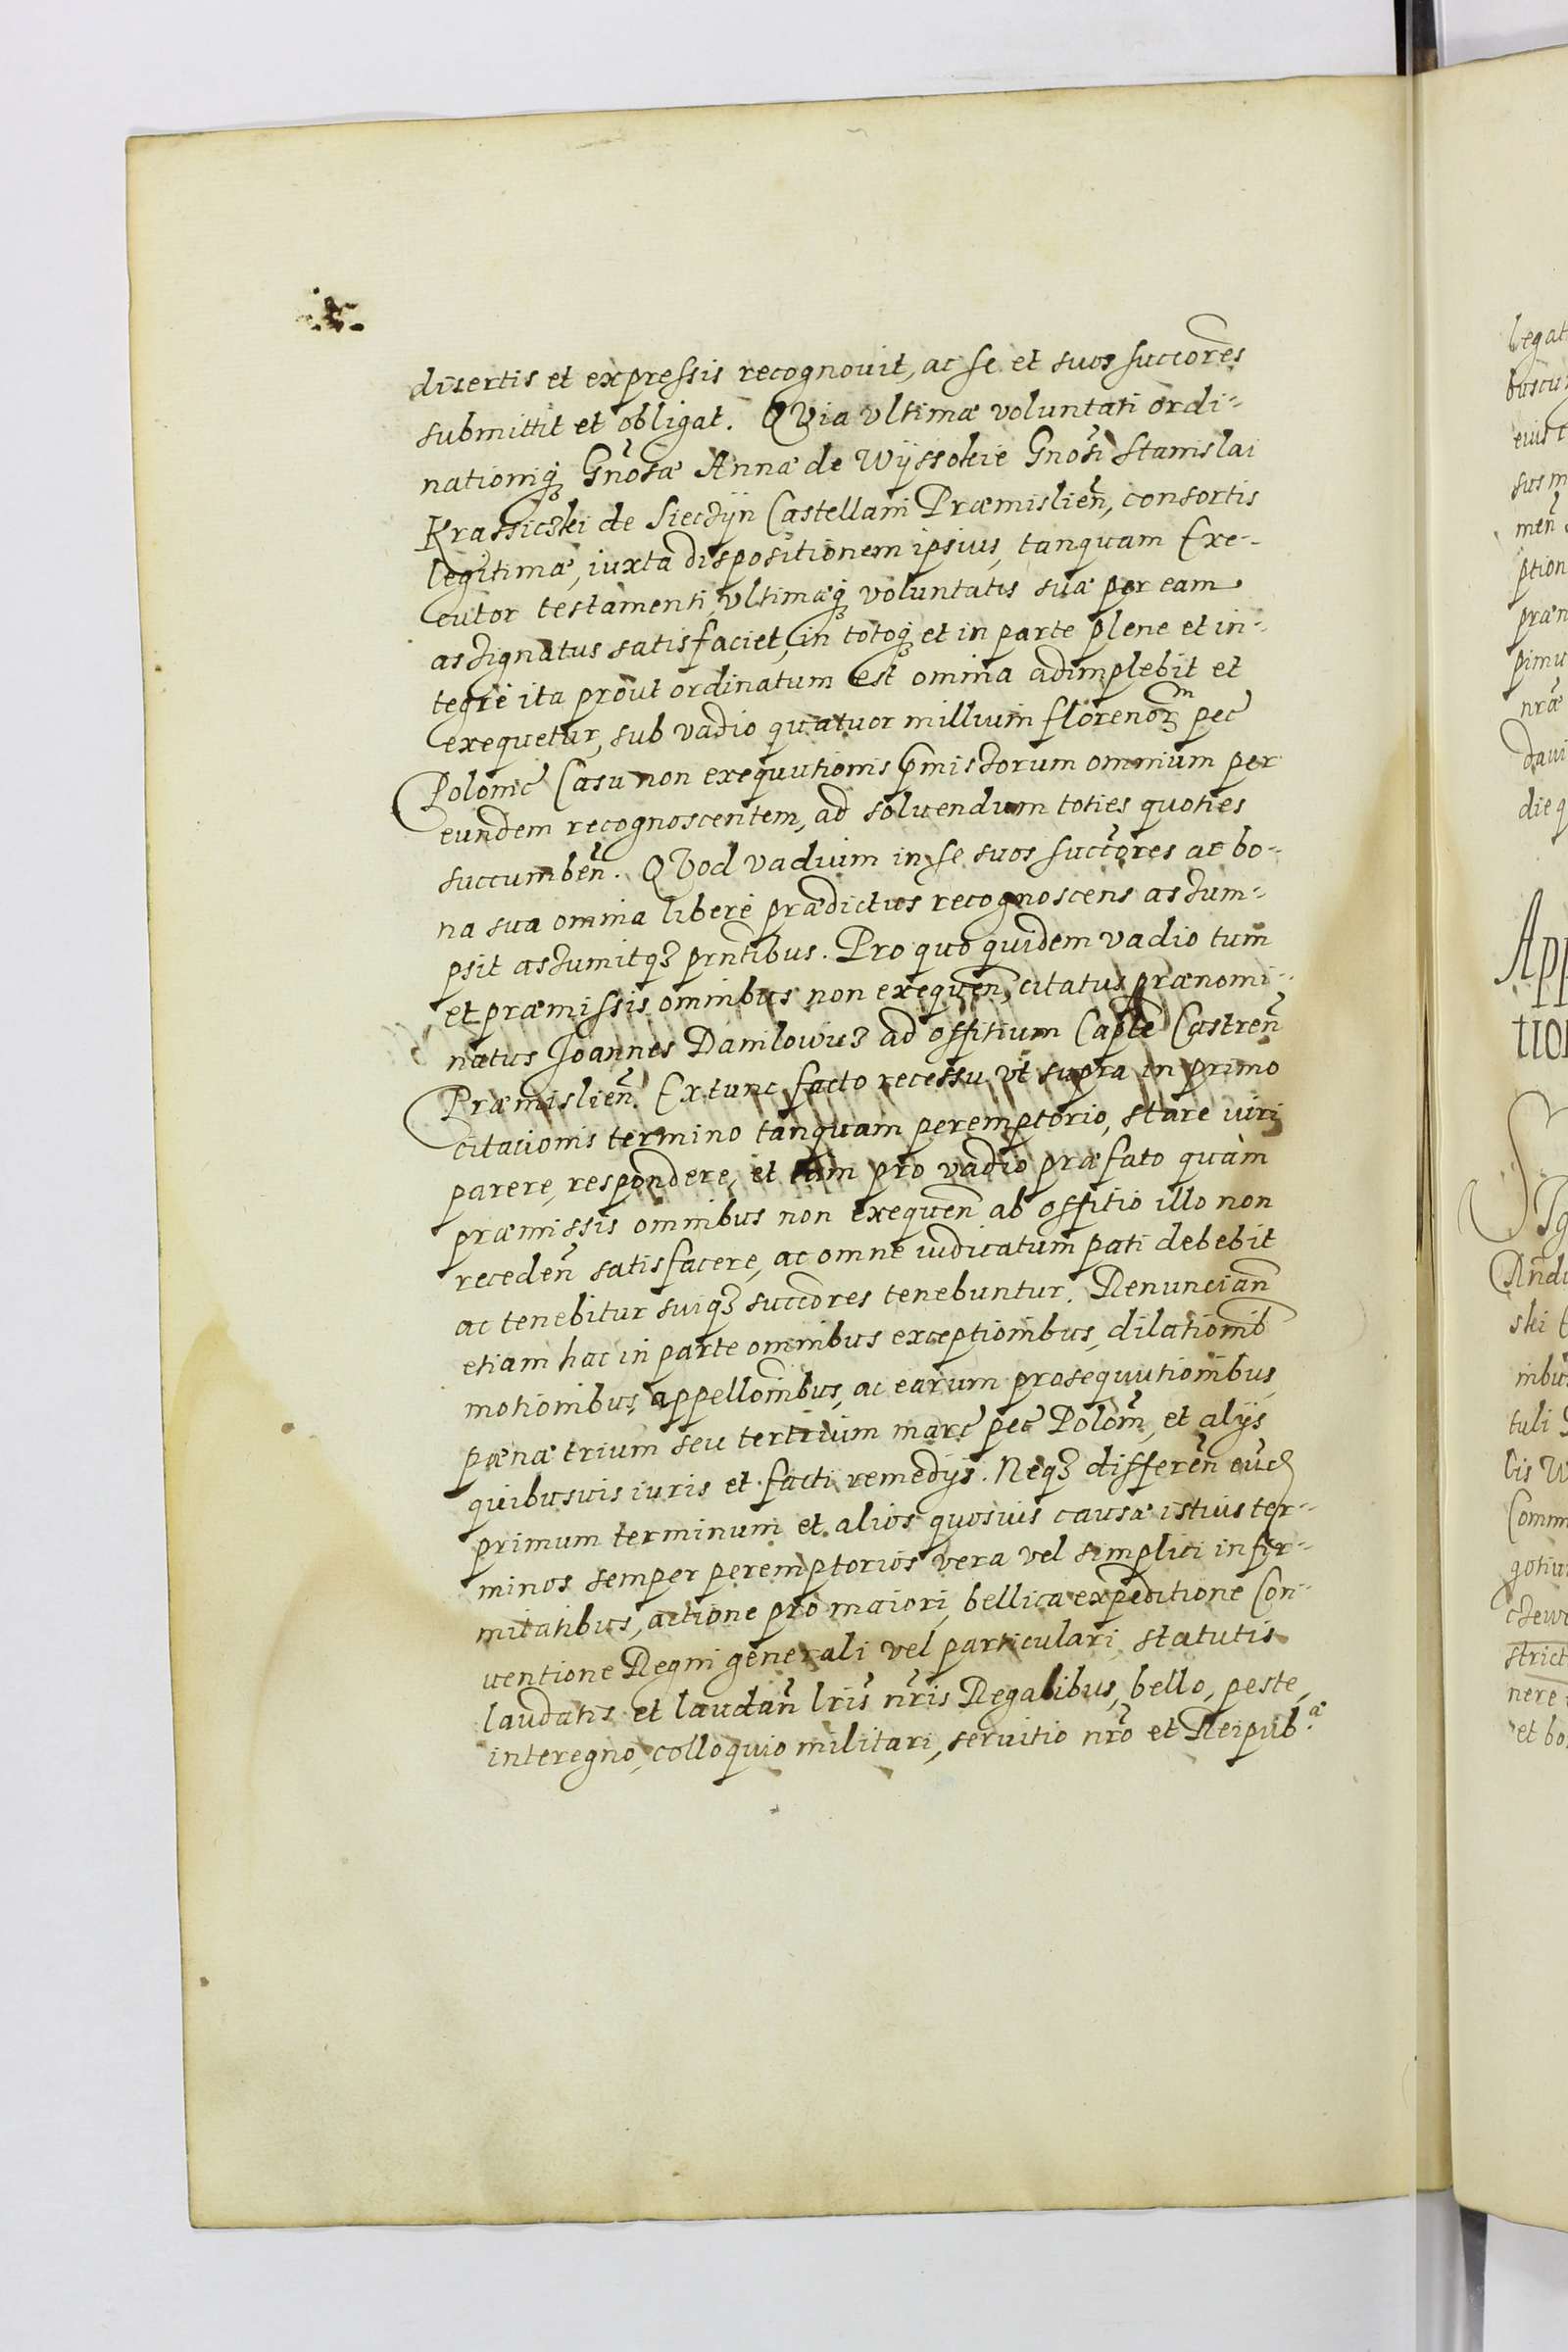 disertis et expressis recognouit, ac se et suos succores̃
submittit et obligat. QVia vltimæ voluntati ordi-
nationiq₃ Gñosæ Annæ de Wÿssokie Gnosi Stanislai
Krassiczki de Sieczÿn Castellani Præmislien̄, consortis
legitimæ, iuxta dispositionem ipsius, tanquam Exe-
cutor testamenti, vltimæq₃ voluntatis suæ per eam
assignatus satisfaciet, in totoq₃ et in parte plene et in-
tegrè ita prout ordinatum est omnia adimplebit et
exequetur, sub vadio quatuor millium florenoꝝ pec̃
Polonic̃ Casu non exequutionis p̄missorum omnium per
eundem recognoscentem, ad soluendum toties quoties
succumben̄. QVod vadium in se suos succores̃ ac bo-
na sua omnia liberè prædictus recognoscens assum-
psit assumitq₃ prñtibus. Pro quo quidem vadio tum
et præmissis omnibus non exequen̄, citatus prænomi-
natus Joannes Danilowicz ad offitium Capl̃e Castren̄
Præmislien̄. Extunc facto recessu vt supra in primo
citationis termino tanquam peremptorio, stare iuri
parere, respondere, et tam pro vadio præfato quàm
præmissis omnibus non exequen̄ ab offitio illo non
receden̄ satisfacere, ac omne iudicatum pati debebit
ac tenebitur suiq₃ succores̃ tenebuntur. Renuncian̄
etiam hac in parte omnibus exceptionibus, dilationib̃
motionibus, appellonibus̃, ac earum prosequutionibus,
pœnæ trium seu tertrium marc̃ pec̃ Polon̄, et alijs
quibusuis iuris et facti remedijs. Neq₃ differen̄ eund̃
primum terminum et alios quosuis causæ istius ter-
minos semper peremptorios vera vel simplici infir-
mitatibus, actione pro maiori, bellica expeditione Con-
uentione Regni generali vel particulari, statutis
laudatis et laudan̄ lris̃ nr̃is Regalibus, bello, peste,
interegno, colloquio militari, seruitio nr̃o et Reipub.æ